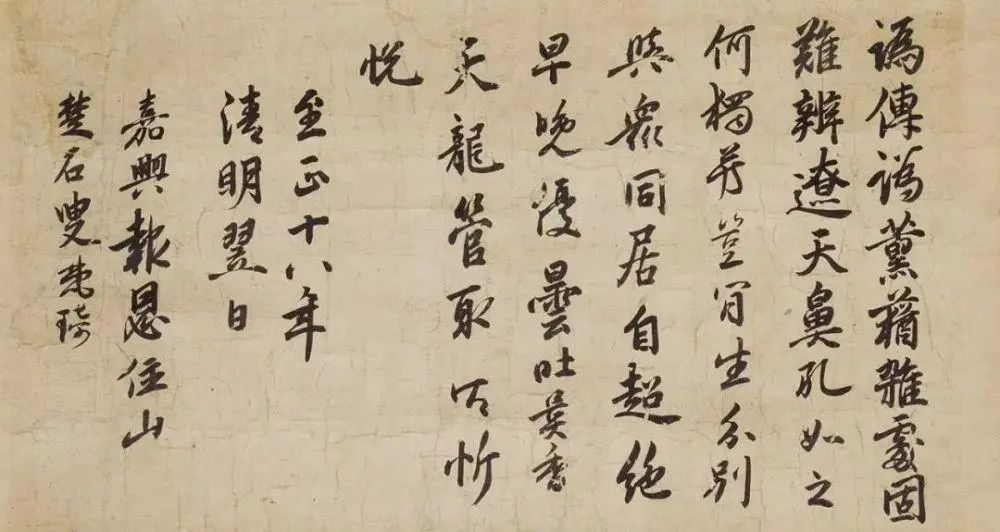 譌傳譌薰蕕雜處固
難辨遼天鼻孔如之
何獨芳豈肎生分別
與衆同居自超絶
早晚優曇吐異香
天龍管取忻
悅
至正十八年
清明翌日
嘉興報恩住山
楚石叟梵琦